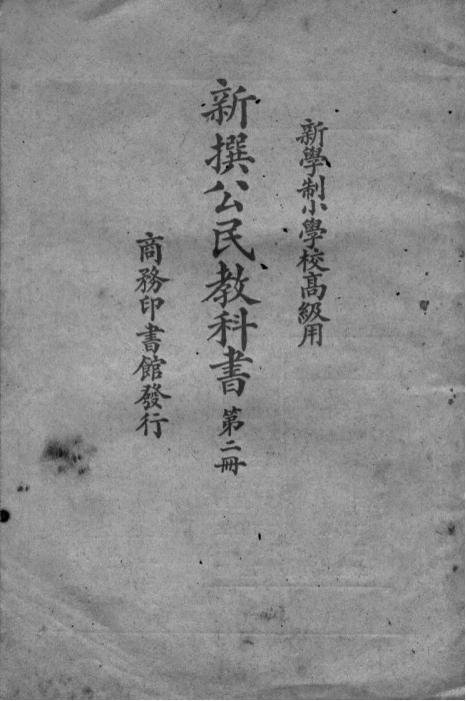 新學制小學校高級用
新撰公民教科書 第二冊
商務印書館發行